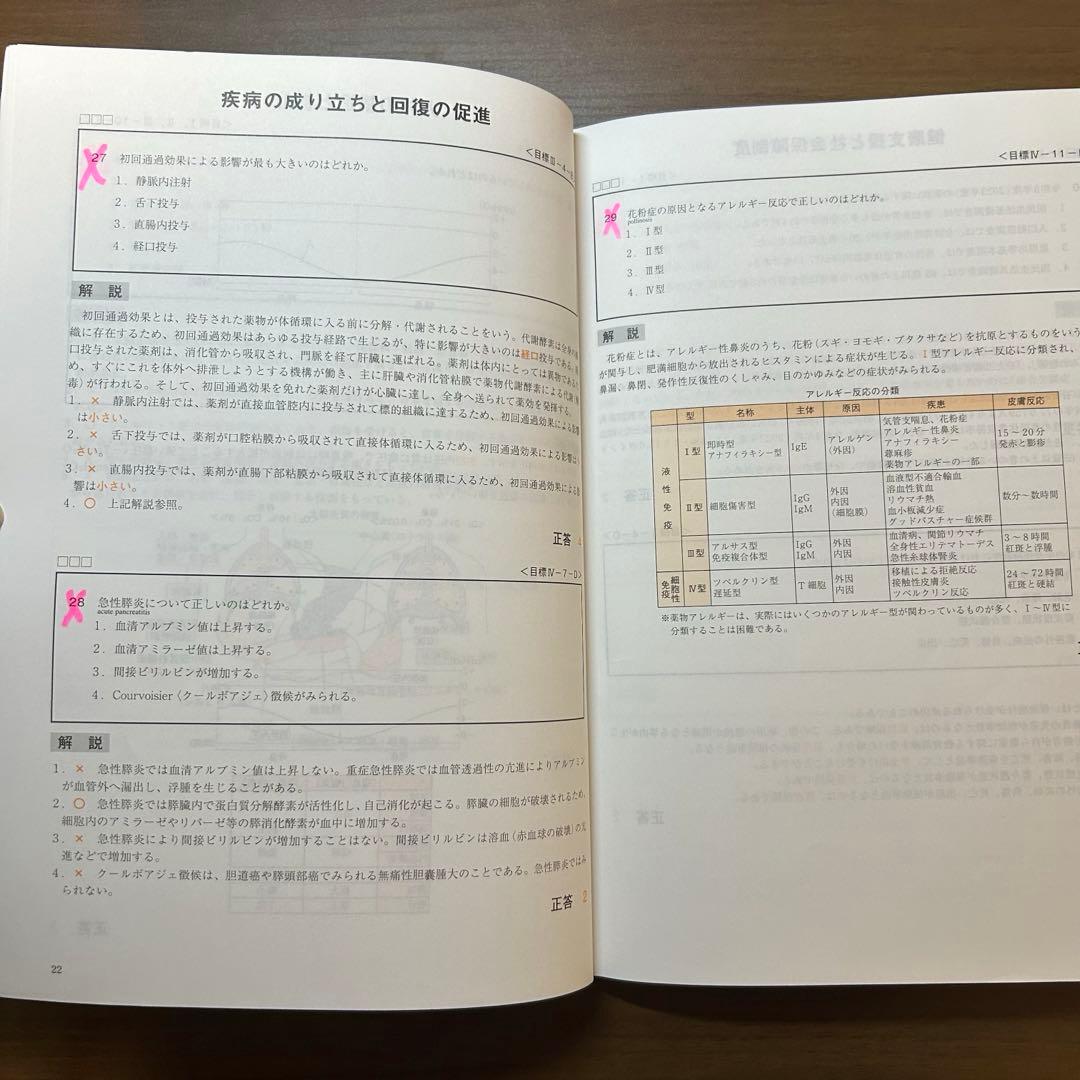 疾病の成り立ちと回復の促進
□□□
<目標Ⅲ－4－
27 初回通過効果による影響が最も大きいのはどれか。
1．静脈内注射
2．舌下投与
3．直腸内投与
4．経口投与
解 説
初回通過効果とは、投与された薬物が体循環に入る前に分解・代謝されることをいう。代謝酵素は全身の
織に存在するため、初回通過効果はあらゆる投与経路で生じるが、特に影響が大きいのは経口投与である。
口投与された薬剤は、消化管から吸収され、門脈を経て肝臓に運ばれる。薬剤は体内にとっては異物である
め、すぐにこれを体外へ排泄しようとする機構が働き、主に肝臓や消化管粘膜で薬物代謝酵素による代謝
毒）が行われる。そして、初回通過効果を免れた薬剤だけが心臓に達し、全身へ送られて薬効を発揮する。
1．× 静脈内注射では、薬剤が直接血管腔内に投与されて標的組織に達するため、初回通過効果による影響
は小さい。
2．× 舌下投与では、薬剤が口腔粘膜から吸収されて直接体循環に入るため、初回通過効果による影響は
さい。
3．× 直腸内投与では、薬剤が直腸下部粘膜から吸収されて直接体循環に入るため、初回通過効果による影
響は小さい。
4．○ 上記解説参照。
正答 4
□□□
<目標Ⅳ－7－D>
28 急性膵炎について正しいのはどれか。
acute pancreatitis
1．血清アルブミン値は上昇する。
2．血清アミラーゼ値は上昇する。
3．間接ビリルビンが増加する。
4．Courvoisier〈クールボアジェ〉徴候がみられる。
解 説
1．× 急性膵炎では血清アルブミン値は上昇しない。重症急性膵炎では血管透過性の亢進によりアルブミン
が血管外へ漏出し、浮腫を生じることがある。
2．○ 急性膵炎では膵臓内で蛋白質分解酵素が活性化し、自己消化が起こる。膵臓の細胞が破壊されるため、
細胞内のアミラーゼやリパーゼ等の膵消化酵素が血中に増加する。
3．× 急性膵炎により間接ビリルビンが増加することはない。間接ビリルビンは溶血（赤血球の破壊）の亢
進などで増加する。
4．× クールボアジェ徴候は、胆道癌や膵頭部癌でみられる無痛性胆嚢腫大のことである。急性膵炎ではみ
られない。
正答 2
22
<目標Ⅳ－11－
□□□
29 花粉症の原因となるアレルギー反応で正しいのはどれか。
pollinosis
1．Ⅰ型
2．Ⅱ型
3．Ⅲ型
4．Ⅳ型
解 説
花粉症とは、アレルギー性鼻炎のうち、花粉（スギ・ヨモギ・ブタクサなど）を抗原とするものをいう
が関与し、肥満細胞から放出されるヒスタミンによる症状が生じる。Ⅰ型アレルギー反応に分類され、
鼻漏、鼻閉、発作性反復性のくしゃみ、目のかゆみなどの症状がみられる。
アレルギー反応の分類
型 名称 主体 原因 疾患 皮膚反応
液性免疫 Ⅰ型 即時型 アナフィラキシー型 IgE アレルゲン（外因） 気管支喘息、花粉症 アレルギー性鼻炎 アナフィラキシー 蕁麻疹 薬物アレルギーの一部 15～20分 発赤と膨疹
Ⅱ型 細胞傷害型 IgG IgM 外因 内因 （細胞膜） 血液型不適合輸血 溶血性貧血 リウマチ熱 血小板減少症 グッドパスチャー症候群 数分～数時間
Ⅲ型 アルサス型 免疫複合体型 IgG IgM 外因 内因 血清病、関節リウマチ 全身性エリテマトーデス 急性糸球体腎炎 3～8時間 紅斑と浮腫
細胞性免疫 Ⅳ型 ツベルクリン型 遅延型 T細胞 外因 内因 移植による拒絶反応 接触性皮膚炎 ツベルクリン反応 24～72時間 紅斑と硬結
※薬物アレルギーは、実際にはいくつかのアレルギー型が関わっているものが多く、Ⅰ～Ⅳ型に
分類することは困難である。